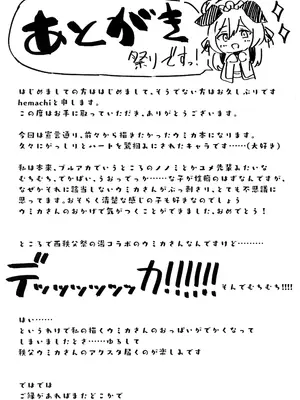 あとがき
祭りですっ!
はじめましての方ははじめまして、そうでない方はお久しぶりです
hemachiと申します。
この度はお手に取っていただき、ありがとうございます。
今回は宣言通り、前々から描きたかったウミカ本になります。
久々にがっしりとハートを鷲掴みにされたキャラです……(大好き)
私は本来、ブルアカでいうところのノノミとかユメ先輩みたいな
むちむち、でかぱい、うおっでっか…な子が性癖のはずなんですが、
なぜかそれに該当しないウミカさんがぶっ刺さり、とても不思議に
思ってます。おそらく清楚な感じの子も好きなのでしょう
ウミカさんのおかげで気がつくことができました、おめでとう!
ところで西秩父祭の湯コラボのウミカさんなんですけど………
デッッッッッッカ!!!!!!
そんでむちむち!!!!
はい……
というわけで私の描くウミカさんのおっぱいがでかくなって
しまいましたとさ……ゆるして
秩父ウミカさんのアクスタ届くのが楽しみです
ではでは
ご縁があればまたどこかで